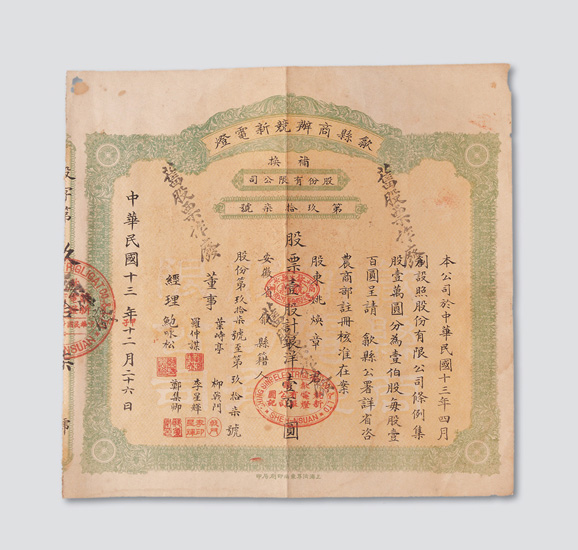 歙縣商辦競新電燈
補換
股份有限公司
第玖拾柒號
舊股票作廢
舊股票作廢
本公司於中華民國十三年四月
創設照股份有限公司條例集
股壹萬圓分為壹伯股每股壹
百圓呈請 歙縣公署詳省咨
農商部註冊核准在案
股東姚煥章君
股票壹股計英洋壹百圓
安徽省歙縣籍人
股份第玖拾柒號至第玖拾柒號
董事
葉峙亭
柳蔭門
羅仲謀
李星輝
鄭集卿
經理 鮑咏松
中華民國十三年十二月二十六日
SHE-HSUAN